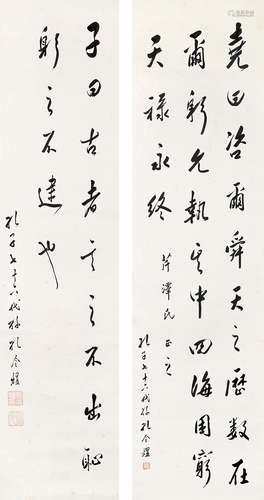 堯曰咨爾舜天之歷數在
爾躬允執其中四海困窮
天祿永終
芹澤氏 正之
孔子七十六代孫孔令煜
子曰古者言之不出恥
躬之不逮也
孔子七十六代孫孔令煜